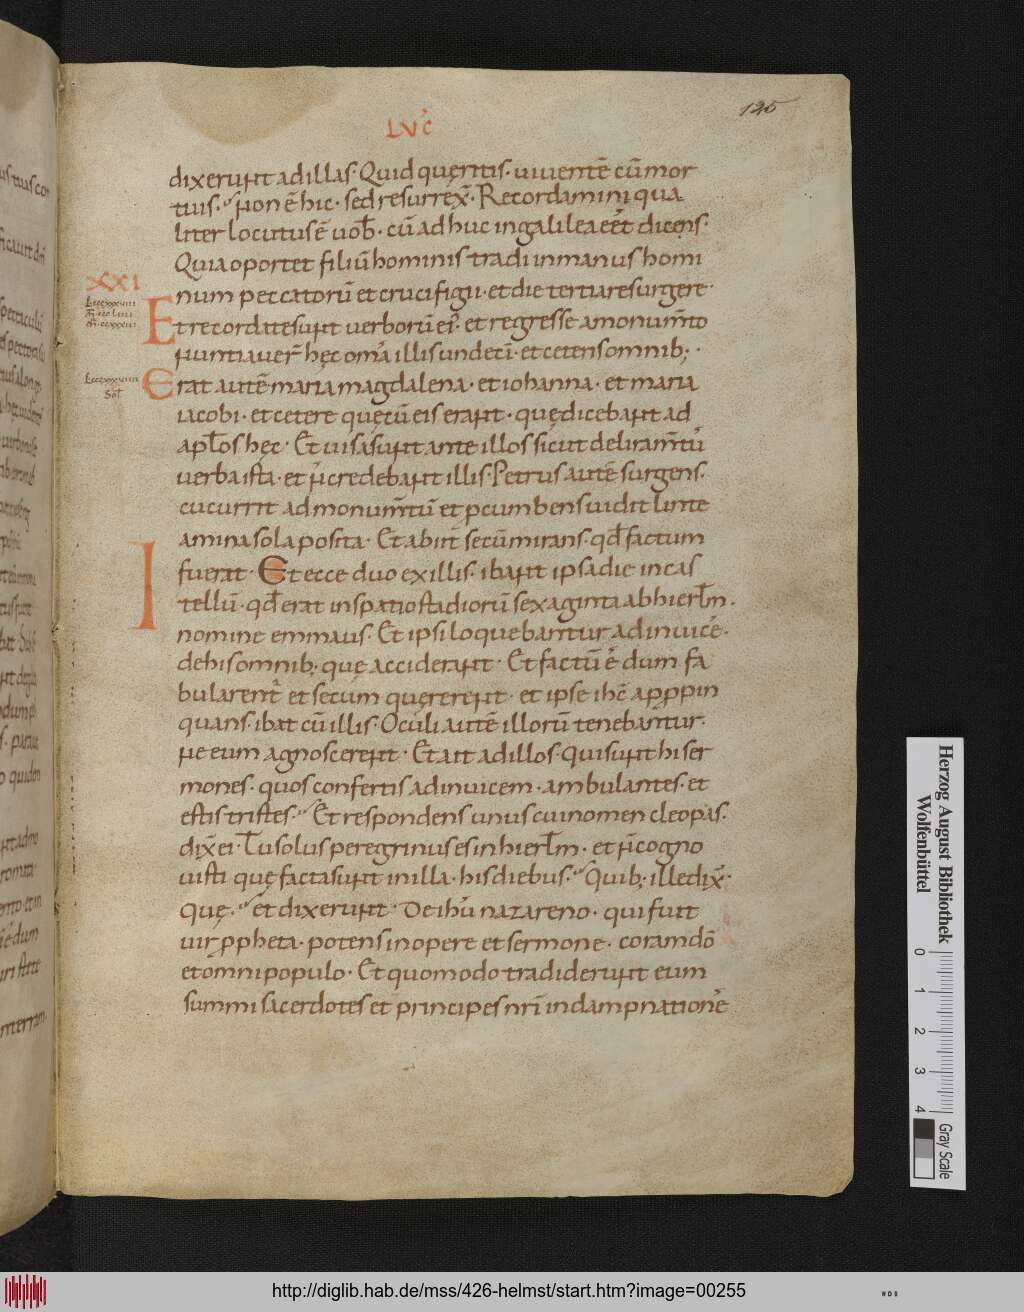 LVC̄
125
dixerunt ad illas· Quid quęritis· viventē cū mor
tuis· Non ē hic· sed resurrex̄· Recordamini qua
liter locutus ē vob̄· cū adhuc in galilea eēt dicens·
Quia oportet filiū hominis tradi in manus homi
XXI
num peccatorū et crucifigi· et die tertia resurgere·
Et recordate sunt verborū ei'· et regresse a monum̄to
nuntiaver̄ hęc om̄a illis undeci· et ceteris omnib;·
Erat autē maria magdalena· et iohanna· et maria
iacobi· et cetere quę cū eis erant· quę dicebant ad
apl̄os hęc· Et visa sunt ante illos sicut deliram̄tū
verba ista· et n̄ credebant illis· Petrus autē surgens·
cucurrit ad monum̄tū et pcumbens vidit linte
amina sola posita· Et abiit secū mirans· qd̄ factum
fuerat· Et ecce duo ex illis· ibant ipsa die in cas
tellū· qd̄ erat in spatio stadiorū sexaginta ab hierl̄m·
nomine emmaus· Et ipsi loquebantur ad invicē·
de his omnib; quę acciderant· Et factū ē dum fa
bularent̄ et secum quęrerent· et ipse ih̄c appropin
quans· ibat cū illis· Oculi autē illorū tenebantur·
ne eum agnoscerent· Et ait ad illos· Qui sunt hi ser
mones· quos confertis ad invicem· ambulantes· et
estis tristes· Et respondens unus cui nomen cleopas·
dix̄ ei· Tu solus peregrinus es in hierl̄m· et n̄ cogno
visti quę facta sunt in illa· his diebus· Quib; ille dix̄·
Quę· et dixerunt· De ih̄u nazareno· qui fuit
vir ppheta· potens in opere et sermone· coram dō
et omni populo· Et quomodo tradiderunt eum
summi sacerdotes et principes nr̄i in dampnationē
Herzog August Bibliothek
Wolfenbüttel
0 1 2 3 4
Gray Scale
http://diglib.hab.de/mss/426-helmst/start.htm?image=00255